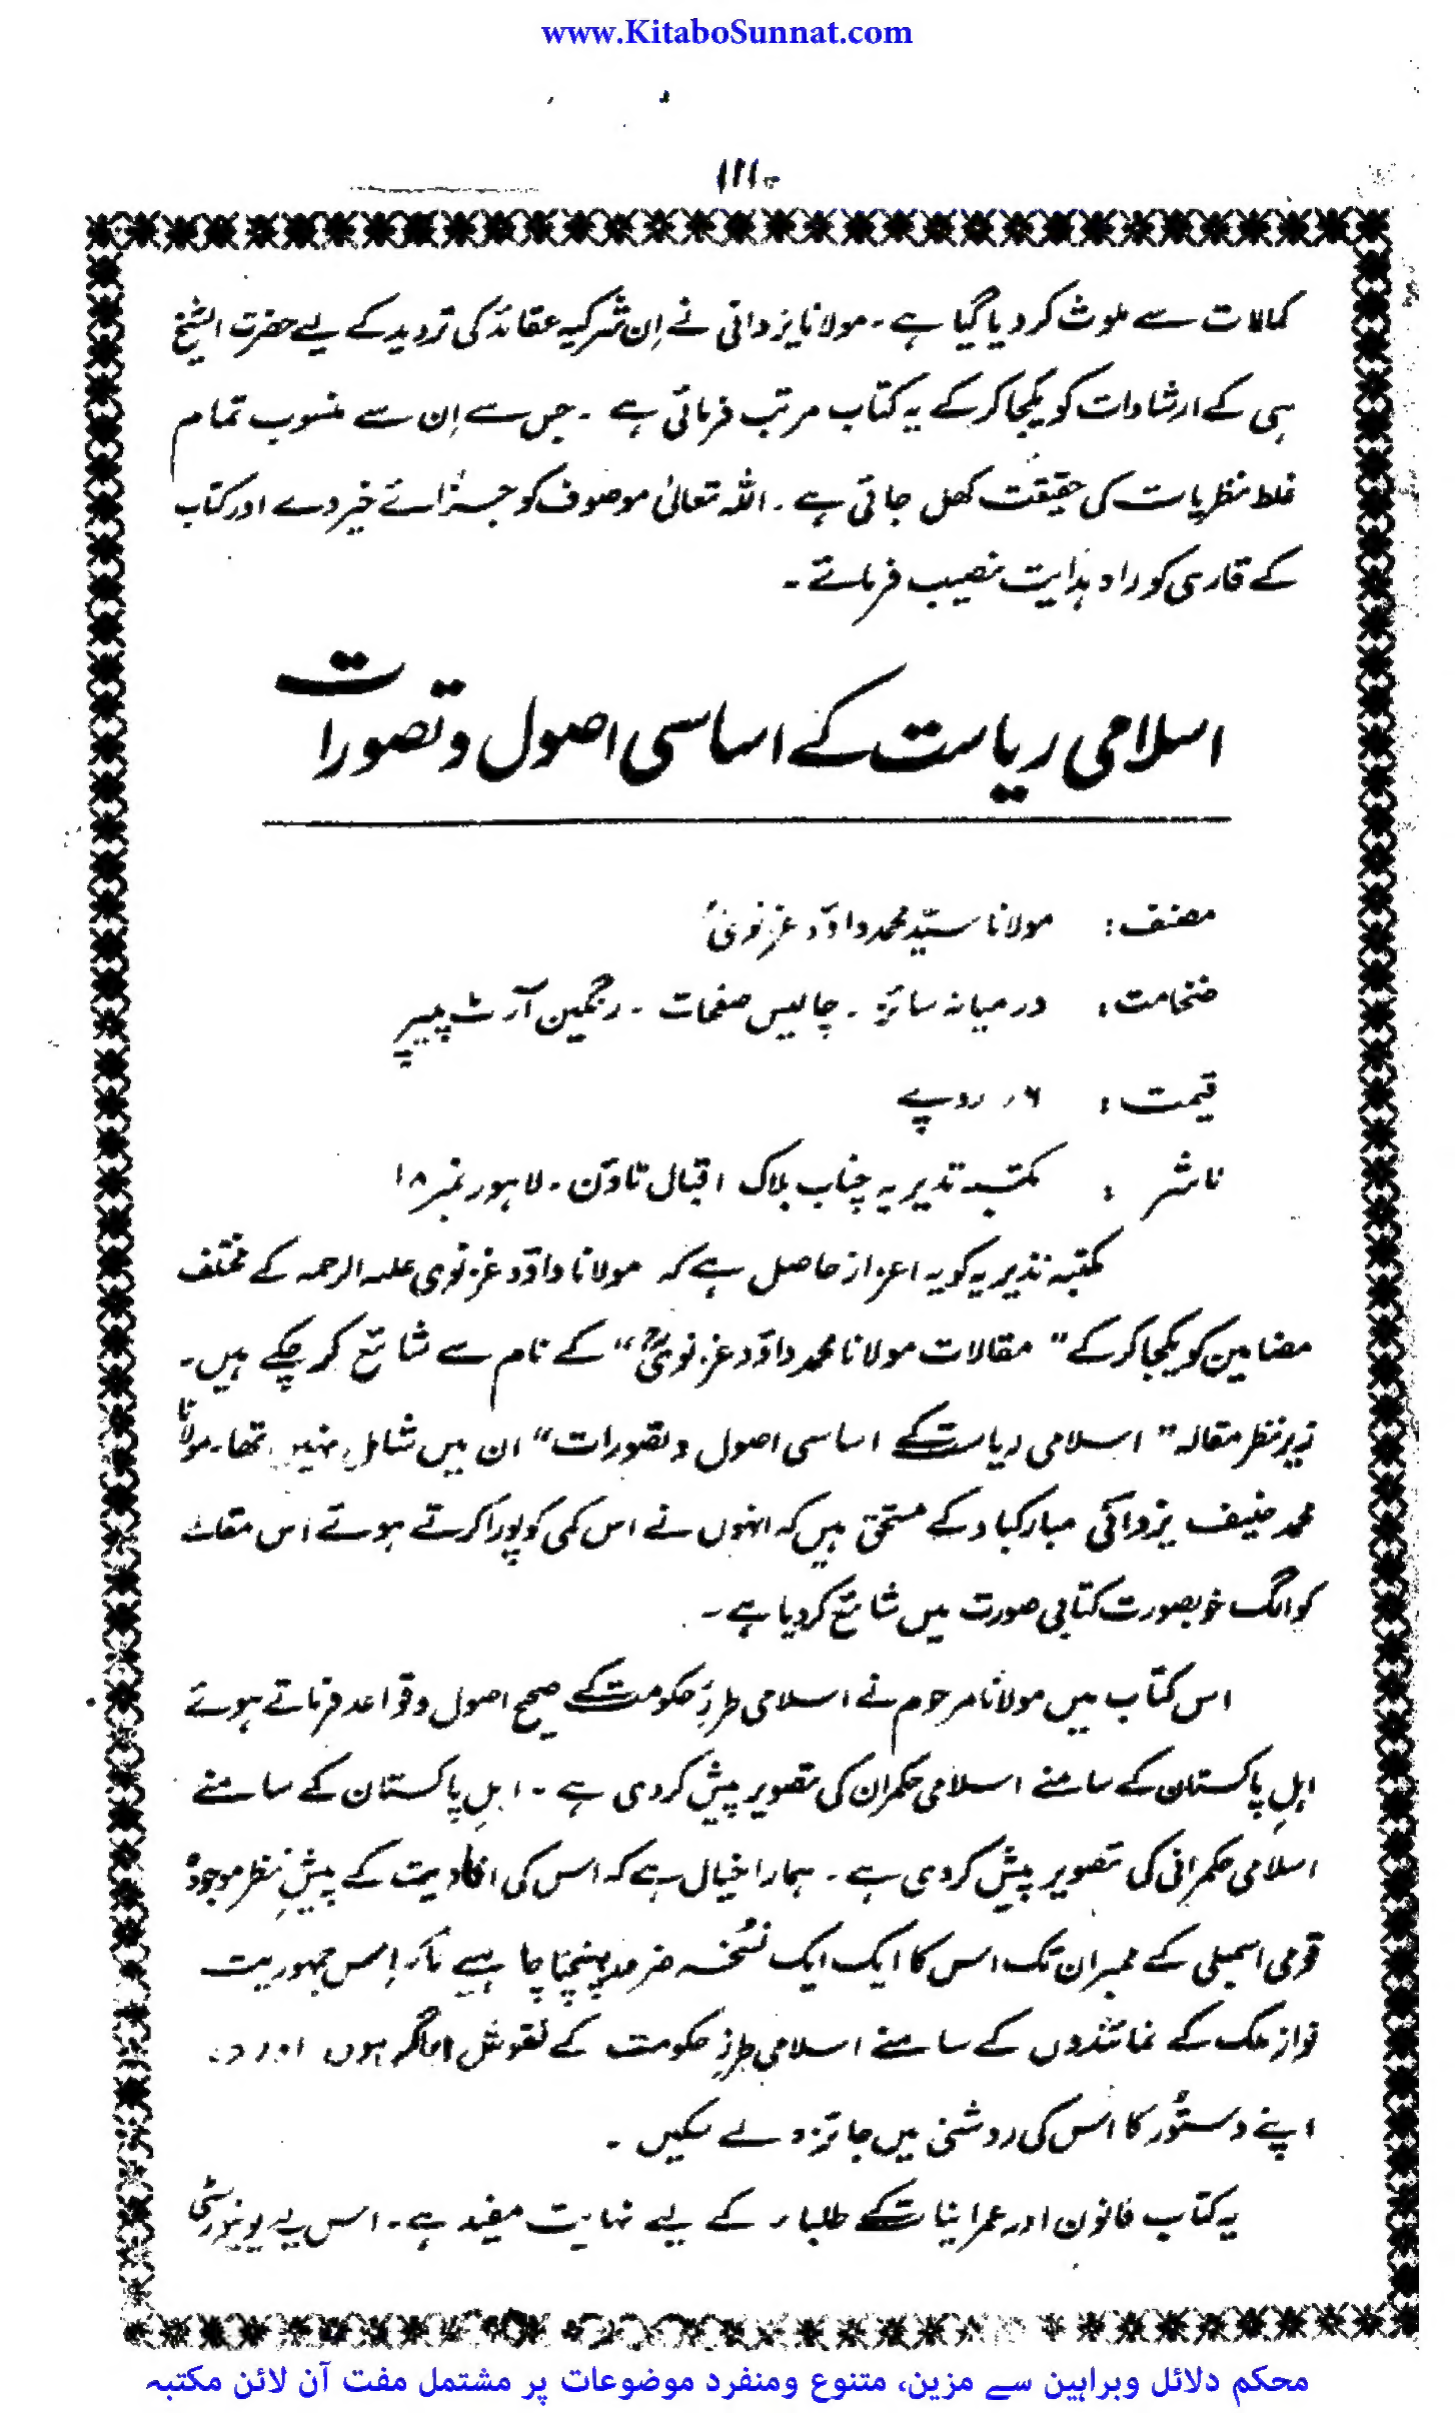 www.KitaboSunnat.com
۱۱۱
کمالات سے ملوث کر دیا گیا ہے۔ مولانا یزدانی نے اِن شرکیہ عقائد کی تردید کے لیے حضرت الشیخ
ہی کے ارشادات کو یکجا کر کے یہ کتاب مرتب فرمائی ہے ۔ جس سے اِن سے منسوب تمام
غلط نظریات کی حقیقت کھل جاتی ہے ۔ اللہ تعالیٰ موصوف کو جزائے خیر دے اور کتاب
کے قاری کو راہ ہدایت نصیب فرمائے ۔
اسلامی ریاست کے اساسی اصول و تصورات
مصنف: مولانا سیّد محمد داؤد غزنویؒ
ضخامت: درمیانہ سائز ۔ چالیس صفحات ۔ رنگین آرٹ پیپر
قیمت: ۶؍ روپے
ناشر : مکتبہ نذیریہ چناب بلاک اقبال ٹاؤن ۔ لاہور نمبر ۱۸
مکتبہ نذیریہ کو یہ اعزاز حاصل ہے کہ مولانا داؤد غزنوی علیہ الرحمہ کے مختلف
مضامین کو یکجا کر کے " مقالات مولانا محمد داؤد غزنویؒ " کے نام سے شائع کر چکے ہیں۔
زیر نظر مقالہ " اسلامی ریاست کے اساسی اصول و تصورات " ان میں شامل نہیں تھا۔ مولانا
محمد حنیف یزدانی مبارکباد کے مستحق ہیں کہ انہوں نے اس کمی کو پورا کرتے ہوئے اس مقالے
کو الگ خوبصورت کتابی صورت میں شائع کر دیا ہے ۔
اس کتاب میں مولانا مرحوم نے اسلامی طرزِ حکومت کے صحیح اصول و قواعد فرماتے ہوئے
اہلِ پاکستان کے سامنے اسلامی حکمران کی تصویر پیش کر دی ہے ۔ اہلِ پاکستان کے سامنے
اسلامی حکمرانی کی تصویر پیش کر دی ہے ۔ ہمارا خیال ہے کہ اس کی افادیت کے پیشِ نظر موجودہ
قومی اسمبلی کے ممبران تک اس کا ایک ایک نسخہ ضرور پہنچنا چاہیے تاکہ اِس جمہوریت
نواز ملک کے نمائندوں کے سامنے اسلامی طرزِ حکومت کے نقوش اجاگر ہوں اور وہ
اپنے دستور کا اس کی روشنی میں جائزہ لے سکیں ۔
یہ کتاب قانون اور عمرانیات کے طلباء کے لیے نہایت مفید ہے۔ اس لیے یونیورسٹی
محکم دلائل وبراہین سے مزین، متنوع ومنفرد موضوعات پر مشتمل مفت آن لائن مکتبہ